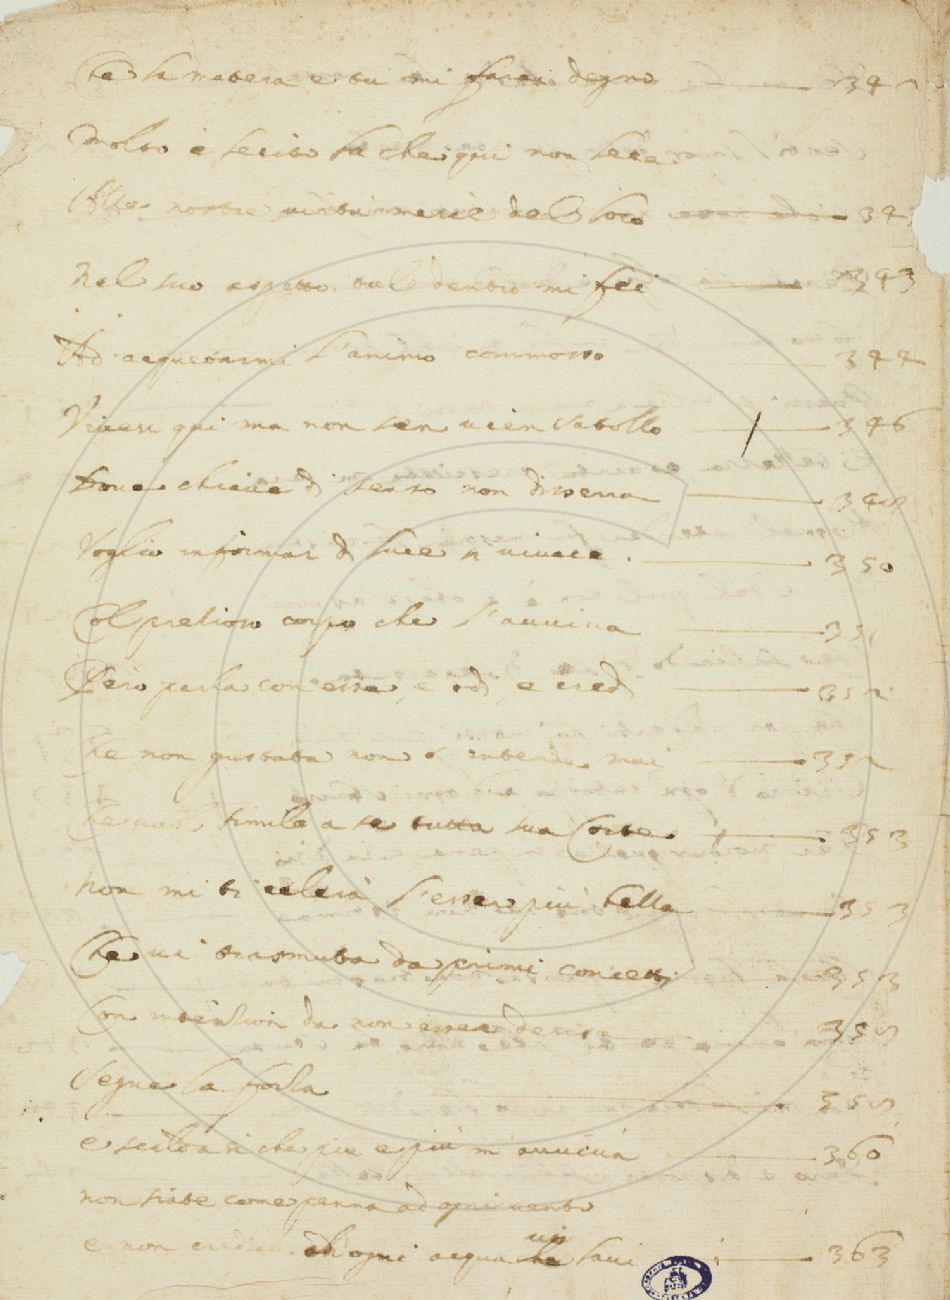 Che la matera e tu mi farai degno 34
Molto è licito là che qui non lece
Alle nostre virtù mercè del loco 34
Nel suo aspetto tal dentro mi fei 343
Ad acquetarmi l'animo commosso 344
Viver qui ma non sen vien satollo 346
Dove chiave di senso non disserra 34
Voglio informar di luce sì vivace . 350
Col pretioso corpo che l'avviva 351
Però parla con essa, e odi, e credi 352
Che non gustata non s' intende mai 352
Che vuol simile a se tutta sua Corte 353
Non mi ti celerà l'esser più bella 353
Che vi trasmuta da primi concetti 353
Con intention da non esser derisa 35
Segue la forza 355
e scalda sì che più e più m' avviva 360
non siate come penna ad ogni vento
e non crediate ch'ogni acqua vi lavi 363